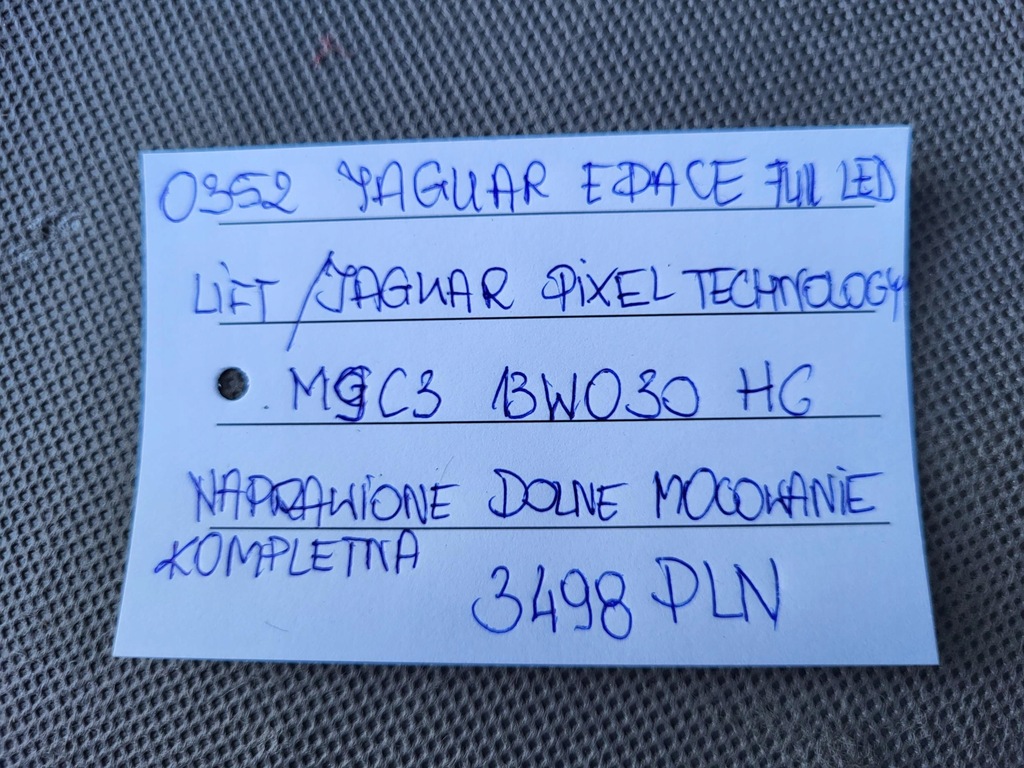 0352 JAGUAR EPACE FUll LED
LiFT / JAGUAR PiXEL TECHNOLOGY
. M9C3 13W030 HG
NAPRAWIONE DOLNE MOCOWANiE
KOMPLETNA
3498 PLN